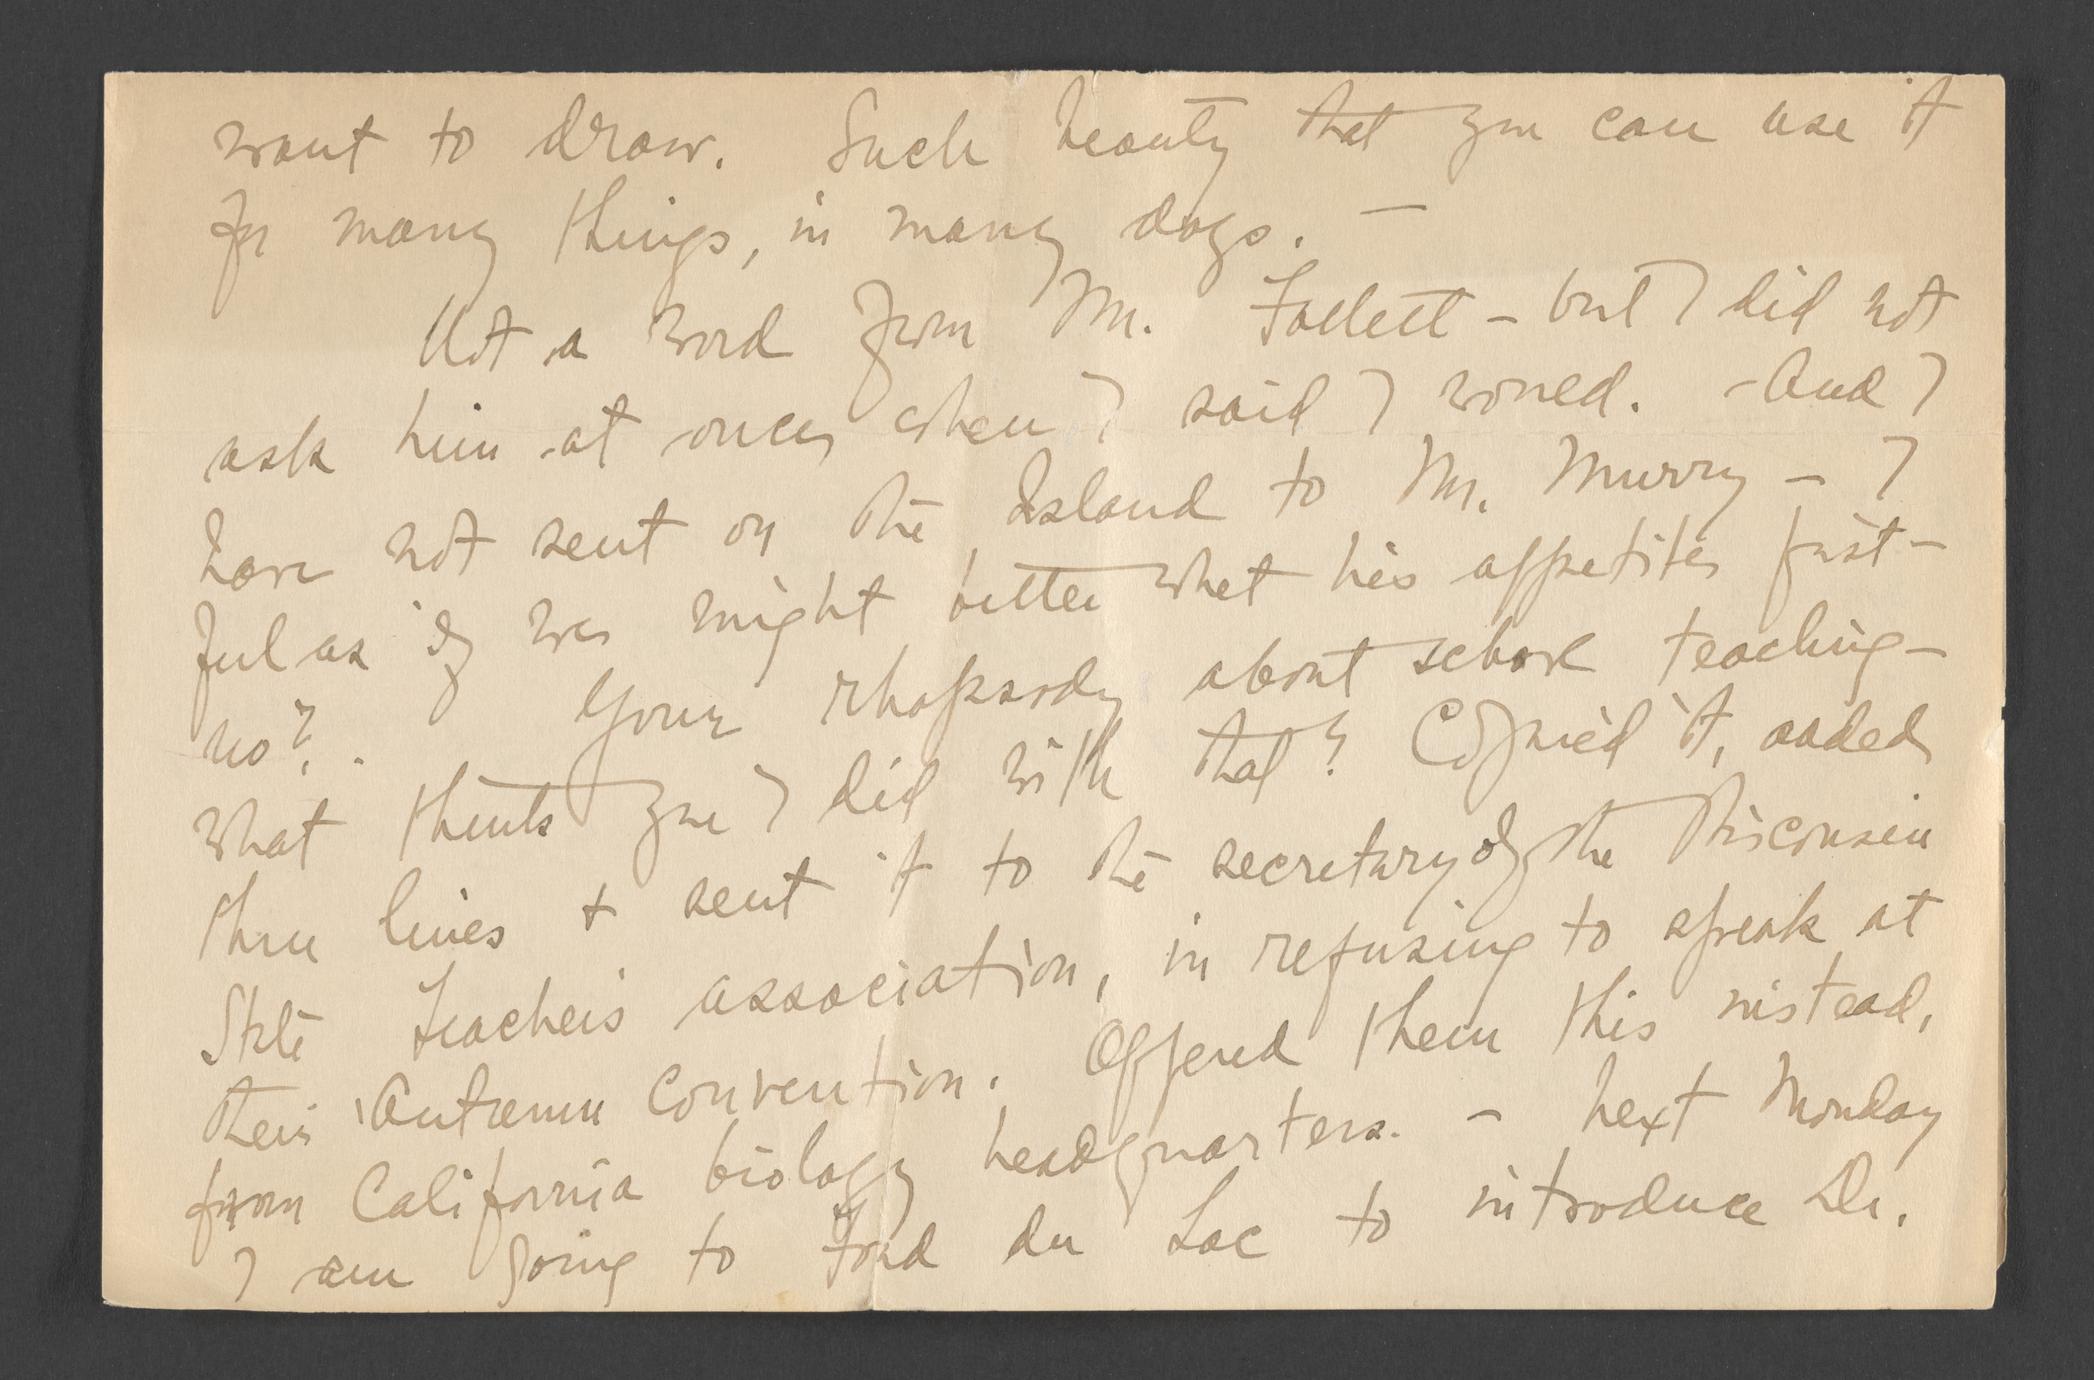 want to draw. Such beauty that you can use it
for many things, in many days. —
Not a word from Mr. Follett – but I did not
ask him at once, when I said I would. – And I
have not sent on the Island to Mr. Murry – I
feel as if we might better whet his appetites first –
no? . Your rhapsody about school teaching –
What think you I did with that? Copied it, added
three lines + sent it to the secretary of the Wisconsin
State Teachers association, in refusing to speak at
their Autumn Convention. Offered them this instead,
from California biology headquarters. – Next Monday
I am going to Fond du Lac to introduce Dr.